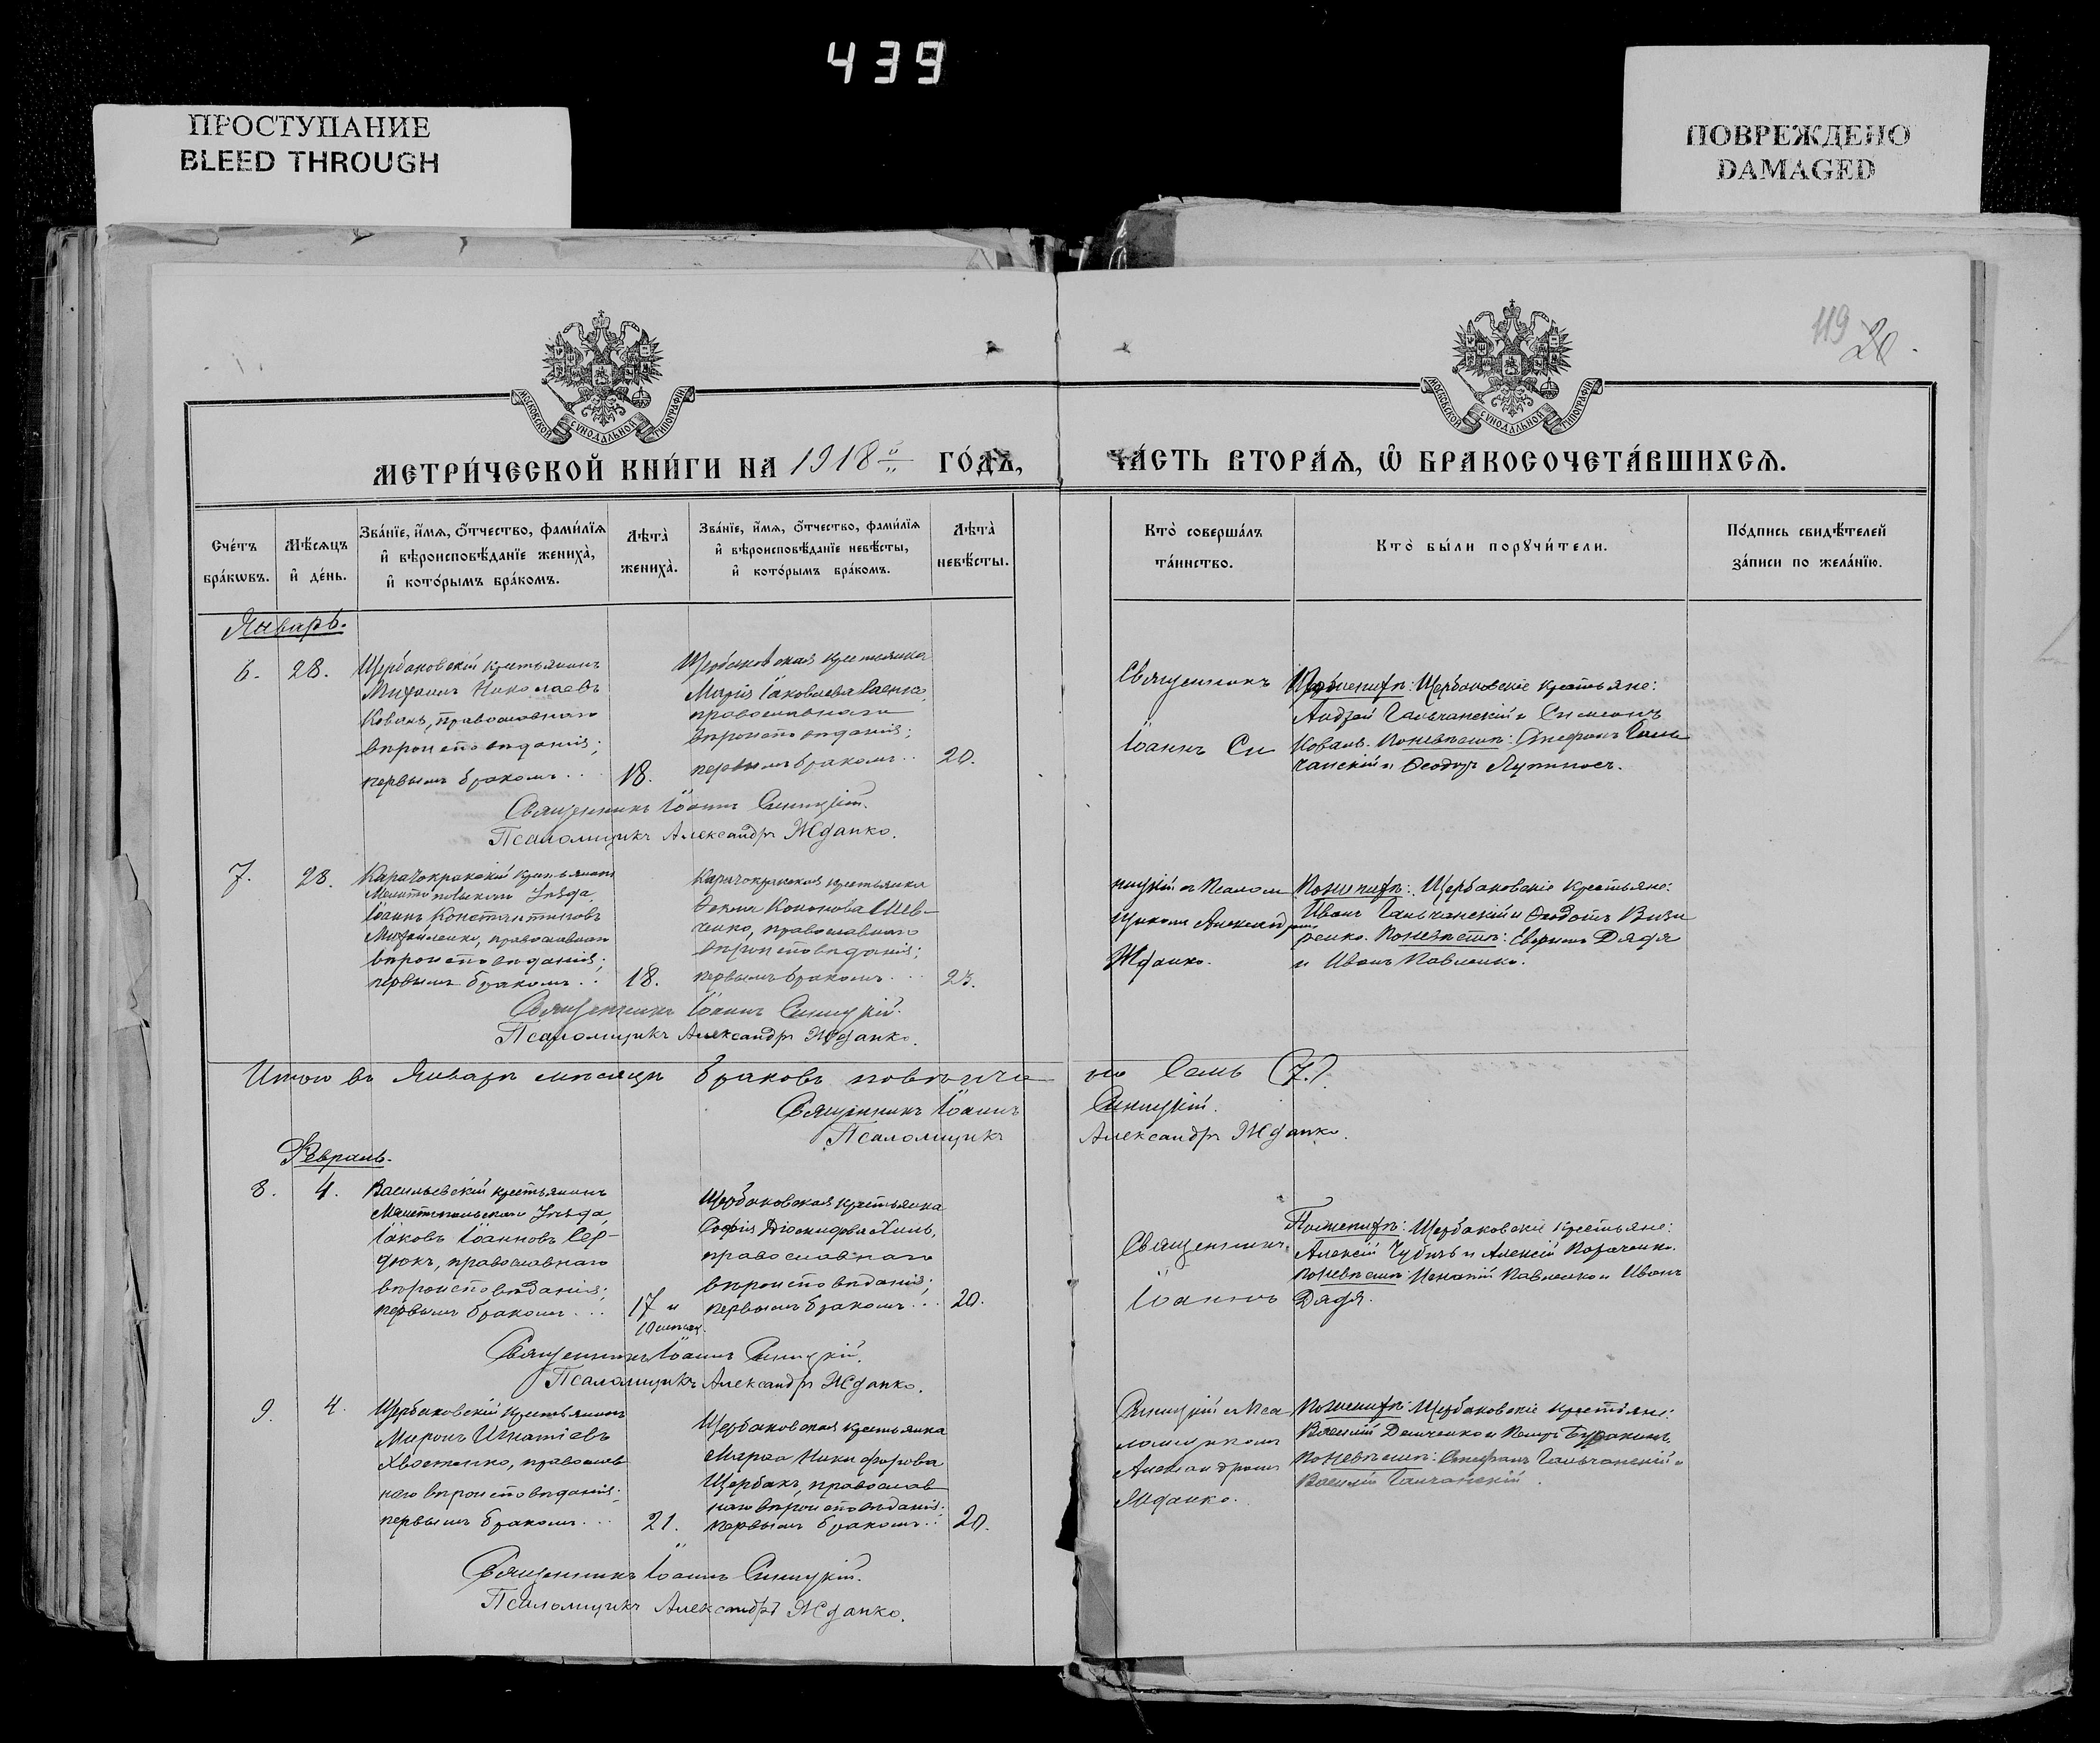 439
ПРОСТУПАНИЕ
BLEED THROUGH
ПОВРЕЖДЕНО
DAMAGED
119 20
МОСКОВСКОЙ СѴНОДАЛЬНОЙ ТИПОГРАФІИ
МОСКОВСКОЙ СѴНОДАЛЬНОЙ ТИПОГРАФІИ
МЕТРИ́ЧЕСКОЙ КНИ́ГИ НА 1918й ГО́ДЪ,
ЧА́СТЬ ВТОРА́Ѧ, Ѡ҆ БРАКОСОЧЕТА́ВШИХСѦ.
Сче́тъ
бра́кѡвъ.
Мѣ́сѧцъ
и҆ де́нь.
Зва́нїе, и҆́мѧ, ѻ҆́тчество, фами́лїѧ
и҆ вѣроисповѣ́данїе жениха̀,
и҆ кото́рымъ бра́комъ.
Лѣта̀
жениха̀.
Зва́нїе, и҆́мѧ, ѻ҆́тчество, фами́лїѧ
и҆ вѣроисповѣ́данїе невѣ́сты,
и҆ кото́рымъ бра́комъ.
Лѣта̀
невѣ́сты.
Кто̀ соверша́лъ
та́инство.
Кто̀ бы́ли порꙋчи́тели.
По́дпись свидѣ́телей
за́писи по жела́нїю.
Январь.
6.
28.
Щербаковскій крестьянинъ
Михаилъ Николаевъ
Коваль, православнаго
вѣроисповѣданія;
первымъ бракомъ...
18.
Щербаковская крестьянка
Марія Іаковлева Саенко,
православнаго
вѣроисповѣданія;
первымъ бракомъ..
20.
Священникъ
Іоаннъ Си
Поженихѣ: Щербаковскіе крестьяне:
Андрей Гальчанскій и Симеонъ
Коваль. Поневѣстѣ: Стефанъ Галь
чанскій и Ѳеодоръ
Священникъ Іоаннъ Синицкій.
Псаломщикъ Александръ Жданко.
7.
28.
Карачокракскій крестьянинъ
Мелитопольскаго Уѣзда,
Іоаннъ Константиновъ
Михайленко, православнаго
вѣроисповѣданія;
первымъ бракомъ..
18.
Карачокракская крестьянка
Кононова Шев-
ченко, православнаго
вѣроисповѣданія;
первымъ бракомъ...
23.
ницкій съ Псалом
щикомъ Александромъ
Жданко.
Поженихѣ: Щербаковскіе крестьяне:
Иванъ Гальчанскій и Ѳеодотъ Визи
ренко. Поневѣстѣ: Дядя
и Иванъ Павленко.
Священникъ Іоаннъ Синицкій.
Псаломщикъ Александръ Жданко.
Итого въ Январѣ мѣсяцѣ браковъ повѣнча
но Семь (7.)
Священникъ Іоаннъ
Синицкій.
Псаломщикъ
Александръ Жданко.
Февраль.
8.
4.
Васильевскій крестьянинъ
Мелитопольскаго Уѣзда,
Іаковъ Іоанновъ Сер-
дюкъ, православнаго
вѣроисповѣданія;
первымъ бракомъ...
17 и
10 мѣсяц.
Щербаковская крестьянка
Софія Діомидова Хиль,
православнаго
вѣроисповѣданія;
первымъ бракомъ...
20.
Священникъ
Іоаннъ
Поженихѣ: Щербаковскіе крестьяне:
Алексій Чубичъ и Алексій Козаченко.
Поневѣстѣ: Игнатій Павленко и Иванъ
Дядя.
Священникъ Іоаннъ Синицкій.
Псаломщикъ Александръ Жданко.
9.
4.
Щербаковскій крестьянинъ
Миронъ Игнатіевъ
Хвостенко, православ
наго вѣроисповѣданія;
первымъ бракомъ...
21.
Щербаковская крестьянка
Марѳа Никифорова
Щербакъ, православ
наго вѣроисповѣданія;
первымъ бракомъ..
20.
Синицкій съ Пса
ломщикомъ
Александромъ
Жданко.
Поженихѣ: Щербаковскіе крестьяне:
Василій Демченко и Петръ
Поневѣстѣ: Стефанъ Гальчанскій и
Василій Галчанскій.
Священникъ Іоаннъ Синицкій.
Псаломщикъ Александръ Жданко.